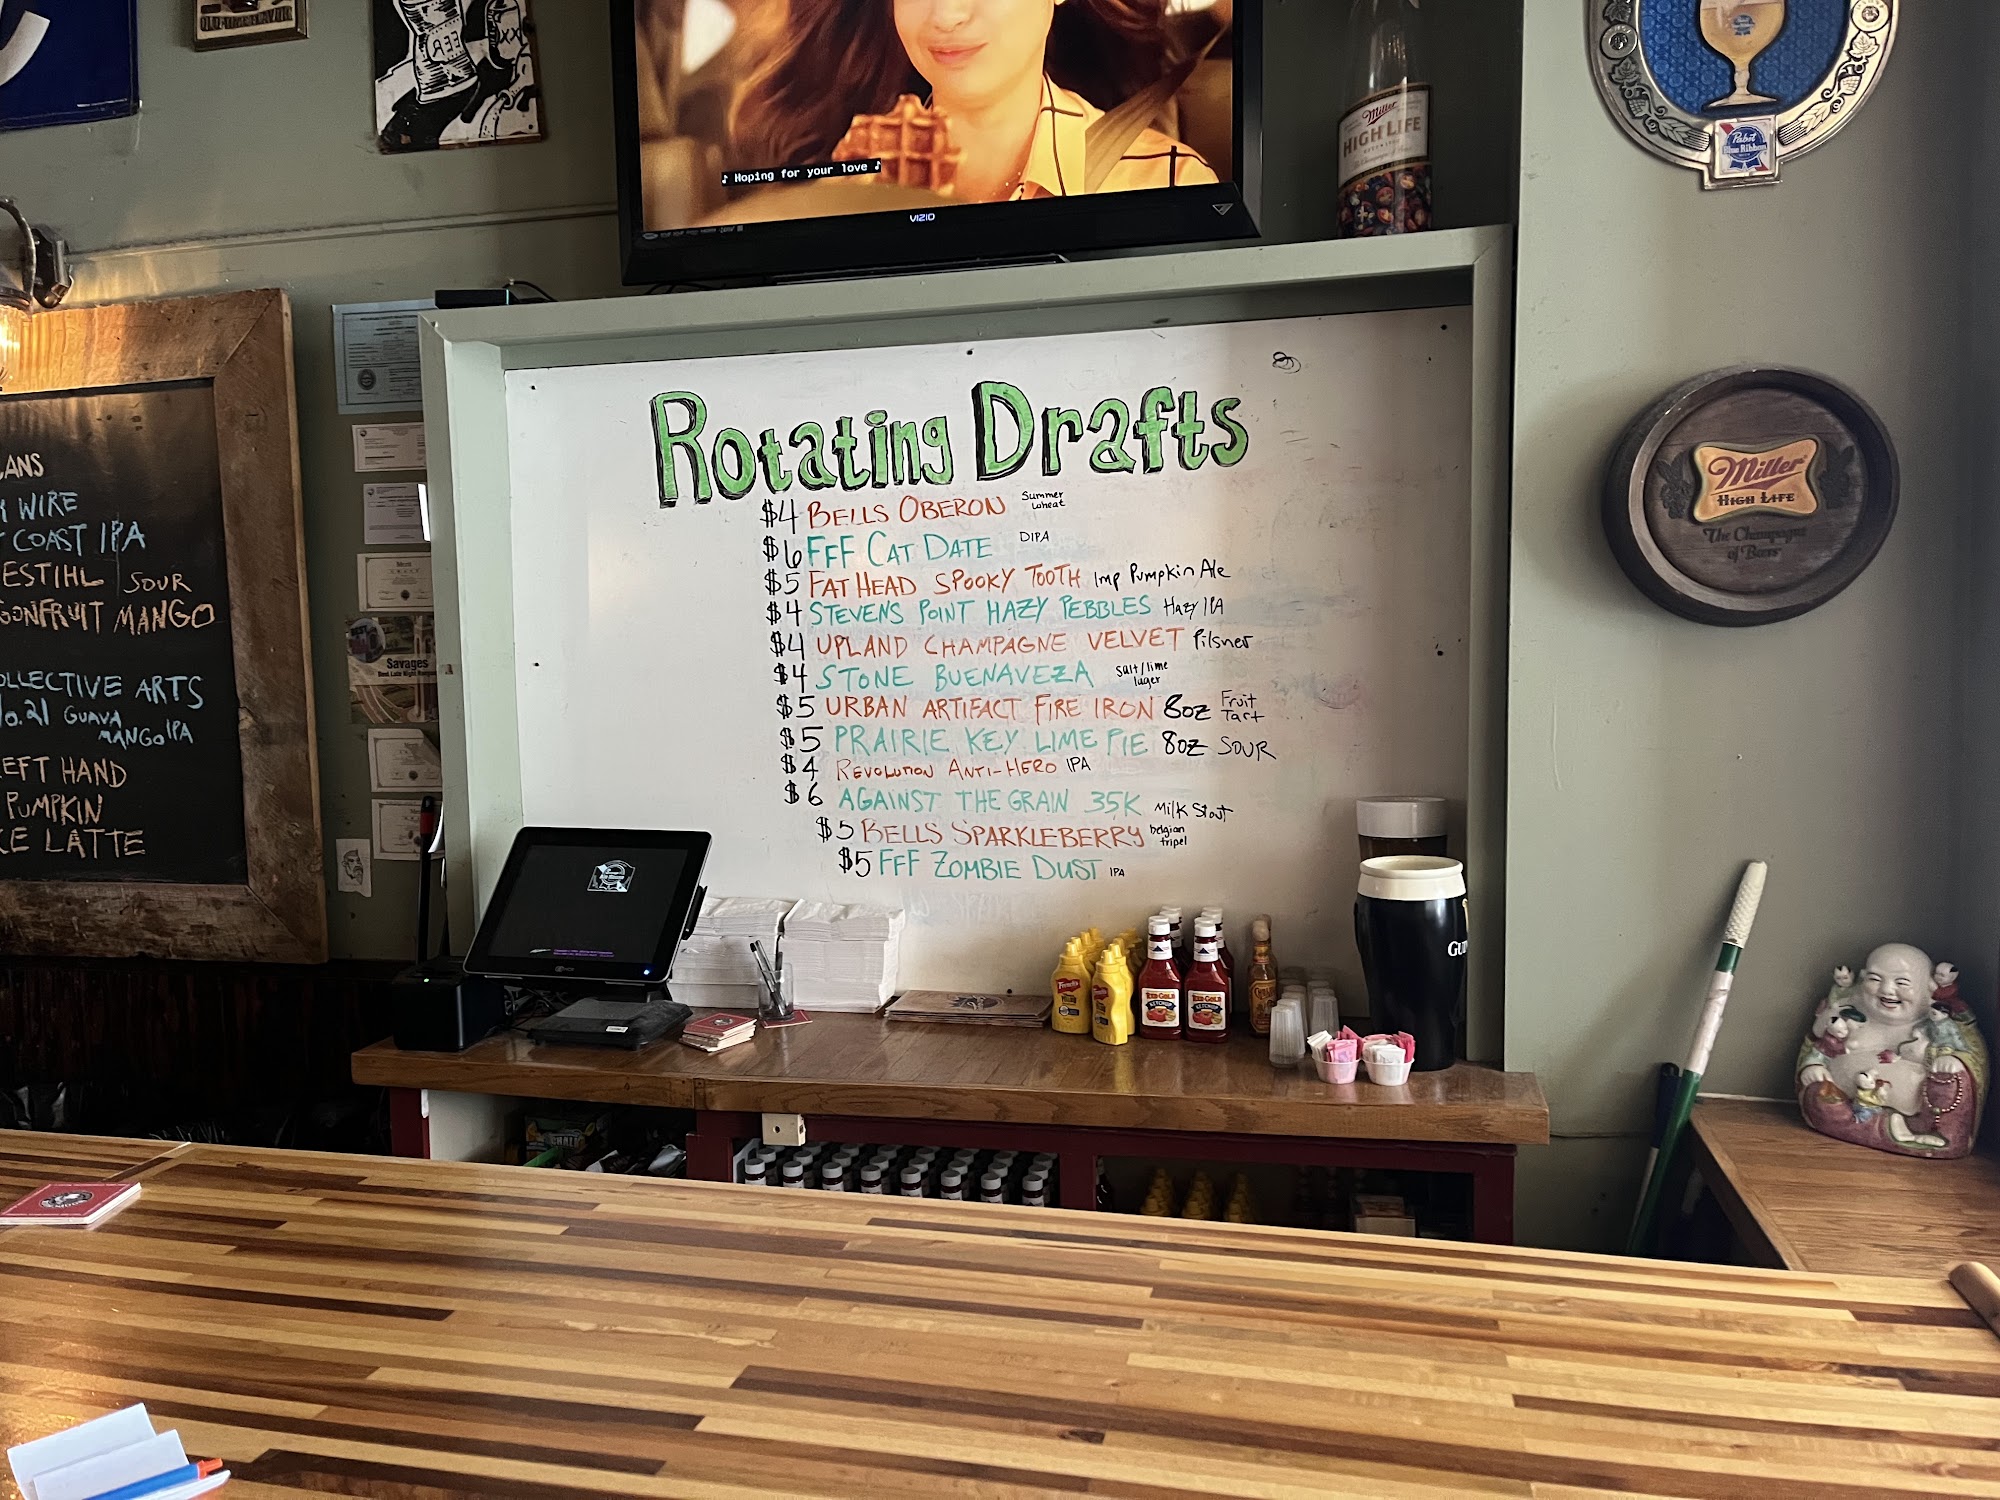 ♪ Hoping for your love ♪
VIZIO
Miller
HIGH LIFE
Pabst
Blue Ribbon
Rotating Drafts
$4 BELLS OBERON Summer wheat
$6 FFF CAT DATE DIPA
$5 FAT HEAD SPOOKY TOOTH Imp Pumpkin Ale
$4 STEVENS POINT HAZY PEBBLES Hazy IPA
$4 UPLAND CHAMPAGNE VELVET Pilsner
$4 STONE BUENAVEZA salt/lime lager
$5 URBAN ARTIFACT FIRE IRON 8oz Fruit Tart
$5 PRAIRIE KEY LIME PIE 8oz SOUR
$4 REVOLUTION ANTI-HERO IPA
$6 AGAINST THE GRAIN 35K Milk Stout
$5 BELLS SPARKLEBERRY belgian tripel
$5 FFF ZOMBIE DUST IPA
ANS
WIRE
COAST IPA
ESTIHL SOUR
GONFRUIT MANGO
OLLECTIVE ARTS
No.21 GUAVA
MANGO IPA
EFT HAND
PUMPKIN
KE LATTE
Savages
Miller
HIGH LIFE
The Champagne
of Beers
French's
RED GOLD
KETCHUP
RED GOLD
KETCHUP
GU
BEER
XX